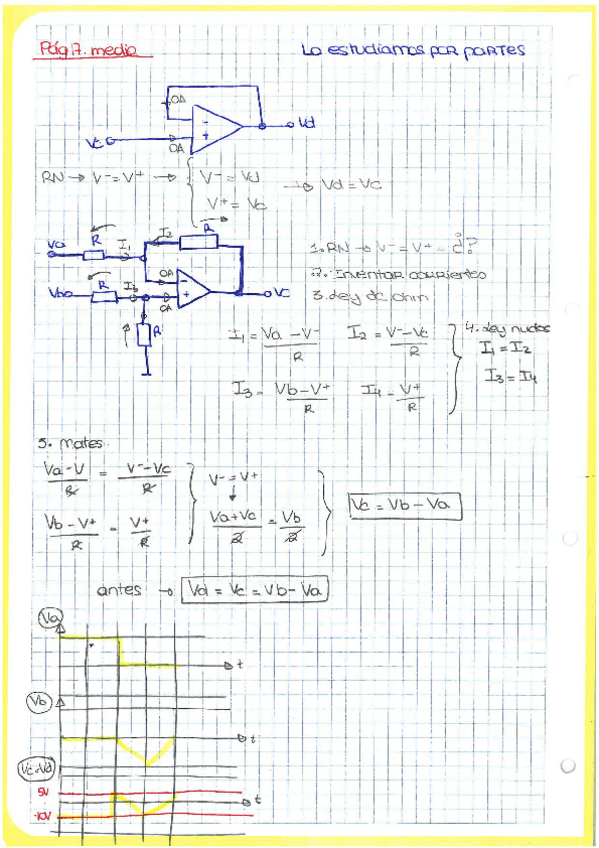 Pág 7. medio
Lo estudiamos por partes
OA
Vd
Vc
OA
RN → V⁻=V⁺ → V⁻ = Vd
V⁺ = Vc
→ Vd = Vc
Va R I₁ I₂ R
OA
Vb R I₃ OA Vc
R
1. RN → V⁻ = V⁺ = ¿?
2. Inventar corrientes
3. Ley de ohm
I₁ = Va - V⁻ / R
I₂ = V⁻ - Vc / R
I₃ = Vb - V⁺ / R
I₄ = V⁺ / R
4. Ley nudos
I₁ = I₂
I₃ = I₄
5. Mates
Va - V / R = V⁻ - Vc / R
Vb - V⁺ / R = V⁺ / R
V⁻ = V⁺
↓
Va + Vc / 2 = Vb / 2
Vc = Vb - Va
antes → Vd = Vc = Vb - Va
Va
t
Vb
t
Vc=Vd
5V
t
-10V